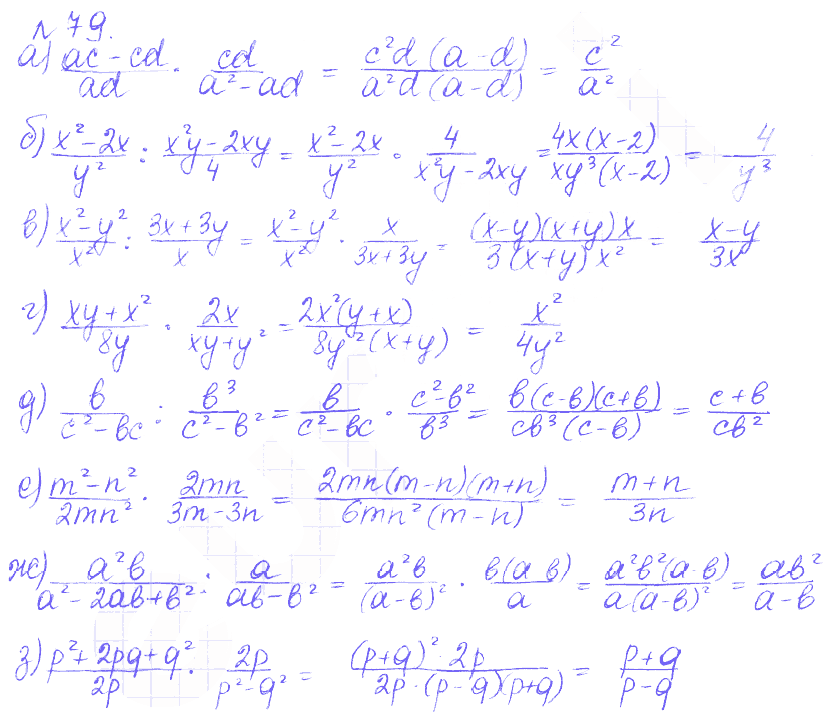 № 79.
а) (ac - cd)/(ad) · (cd)/(a² - ad) = (c²d (a - d))/(a²d (a - d)) = c²/a²
б) (x² - 2x)/y² : (x²y - 2xy)/4 = (x² - 2x)/y² · 4/(x²y - 2xy) = (4x(x - 2))/(xy³(x - 2)) = 4/y³
в) (x² - y²)/x² : (3x + 3y)/x = (x² - y²)/x² · x/(3x + 3y) = ((x - y)(x + y)x)/(3(x + y)x²) = (x - y)/(3x)
г) (xy + x²)/(8y) · (2x)/(xy + y²) = (2x²(y + x))/(8y²(x + y)) = x²/(4y²)
д) в/(c² - вc) : в³/(c² - в²) = в/(c² - вc) · (c² - в²)/в³ = (в(c - в)(c + в))/(cв³(c - в)) = (c + в)/(cв²)
е) (m² - n²)/(2mn²) · (2mn)/(3m - 3n) = (2mn(m - n)(m + n))/(6mn²(m - n)) = (m + n)/(3n)
ж) (a²в)/(a² - 2aв + в²) : a/(aв - в²) = (a²в)/(a - в)² · (в(a в))/a = (a²в²(a - в))/(a(a - в)²) = (aв²)/(a - в)
з) (p² + 2pq + q²)/(2p) · (2p)/(p² - q²) = ((p + q)² · 2p)/(2p · (p - q)(p + q)) = (p + q)/(p - q)